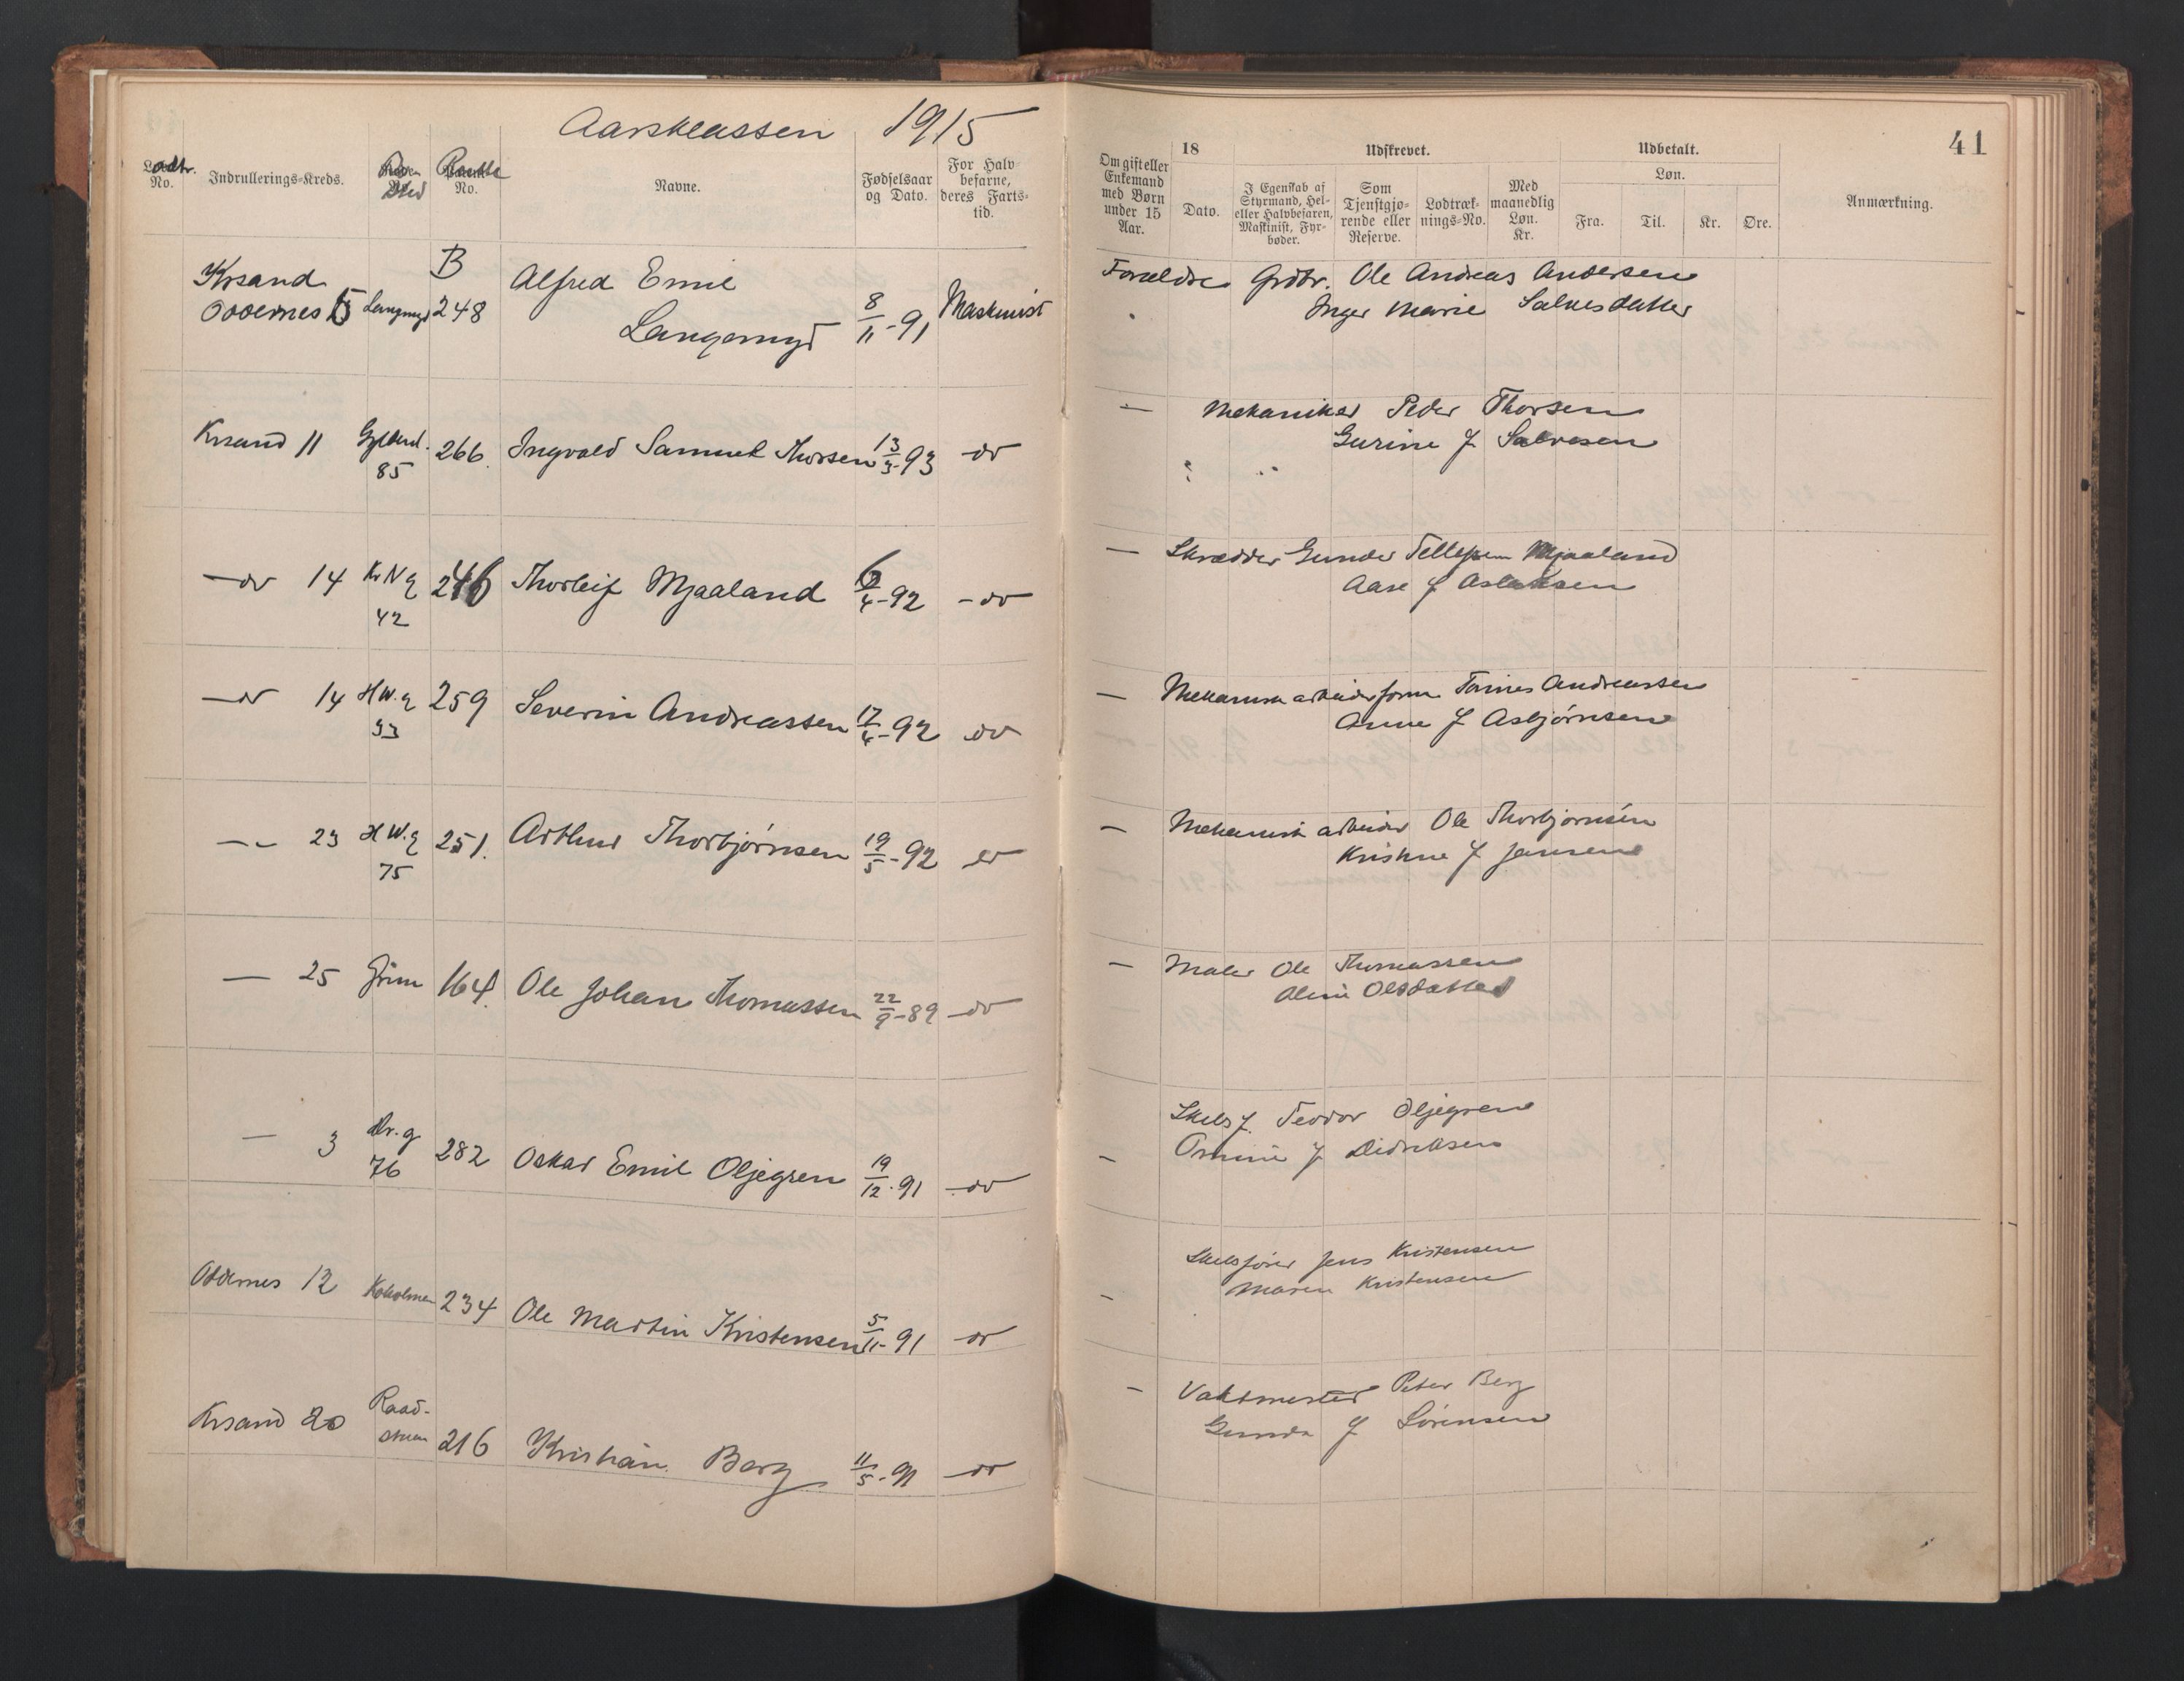 Aarsklassen 1915
41
No. Indrullerings-Kreds. No. Navne. Fødselsaar og Dato. For Halvbefarne, deres Fartstid.
Om gift eller Enkemand med Børn under 15 Aar. 18 Dato. Udskrevet. I Egenskab af Styrmand, Hel- eller Halvbefaren, Maskinist, Fyrbøder. Som Tjenstgjørende eller Reserve. Lodtræknings-No. Med maanedlig Løn. Kr. Udbetalt. Løn. Fra. Til. Kr. Øre. Anmærkning.
Krsand B Alfred Emil
Oddernes 5 Langmyr 248 Langemyr 8/11-91 Maskinist
Forældre Grdbr. Ole Andreas Andersen
Inger Marie Salvesdatter
Krsand 11 Gyldenl. 85 266 Ingvald Samuel Thorsen 13/3-93 do
— Mekaniker Peder Thorsen
Gurine f Salvesen
— do 14 Kr N g 42 246 Thorleif Mjaaland 6/4-92 - do
— Skrædder Gunder Tellefsen Mjaaland
Aase f Aslaksen
— do 14 H W. g 33 259 Severin Andreassen 17/4-92 do
— Mekanisk arbeider Tønnes Andreassen
Anne f Asbjørnsen
— 23 H W. g 75 251. Arthur Thorbjørnsen 19/5-92 do
— Mekanisk arbeider Ole Thorbjørnsen
Kristine f Jensen
— 25 Grim 164. Ole Johan Thomassen 22/9-89 do
— Maler Ole Thomassen
Oline Olsdatter
— 3 Dr. g 76 282 Oskar Emil Oljegren 19/12-91 - do
Skibsf. Teodor Oljegren
— f Didriksen
Oddernes 12 Kokolmen 234 Ole Martin Kristensen 5/11-91 do
Skibsfører Jens Kristensen
- Maren Kristensen
Krsand 20 Raadstuen 216 Kristian Berg 11/5-91 do
— Vaktmester Peter Berg
Gunda f Sørensen